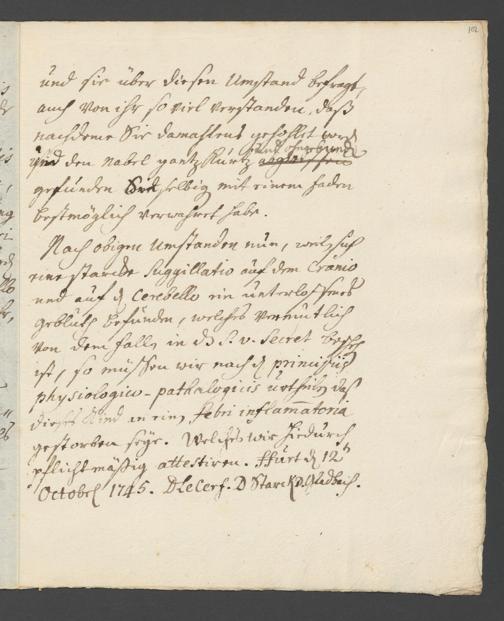 102
und sie über diesen Umstand befragt,
auch von ihr so viel verstanden, daß
nachdeme Sie damahlens gehohlet word
und den Nabel gantz kurtz
gefunden Sie selbig mit einem faden
bestmöglich verwahret habe.
Nach obigen Umständen nun, weil sich
eine starcke Suggillatio auf dem Cranio
und auf d Cerebello ein unterloffenes
geblüth befunden, welches vermutlich
von dem fall in d S. v. Secret
ist, so müssen wir nach d principiis
physiologico-pathalogicis urtheilen daß
dieses Kind in ein febri inflam̄atoria
gestorben seye. Welches wir hiedurch
pflichtmäßig attestiren. ffurt d 12t
Octobr 1745. D LeCerf. D Starck D. Gladbach.